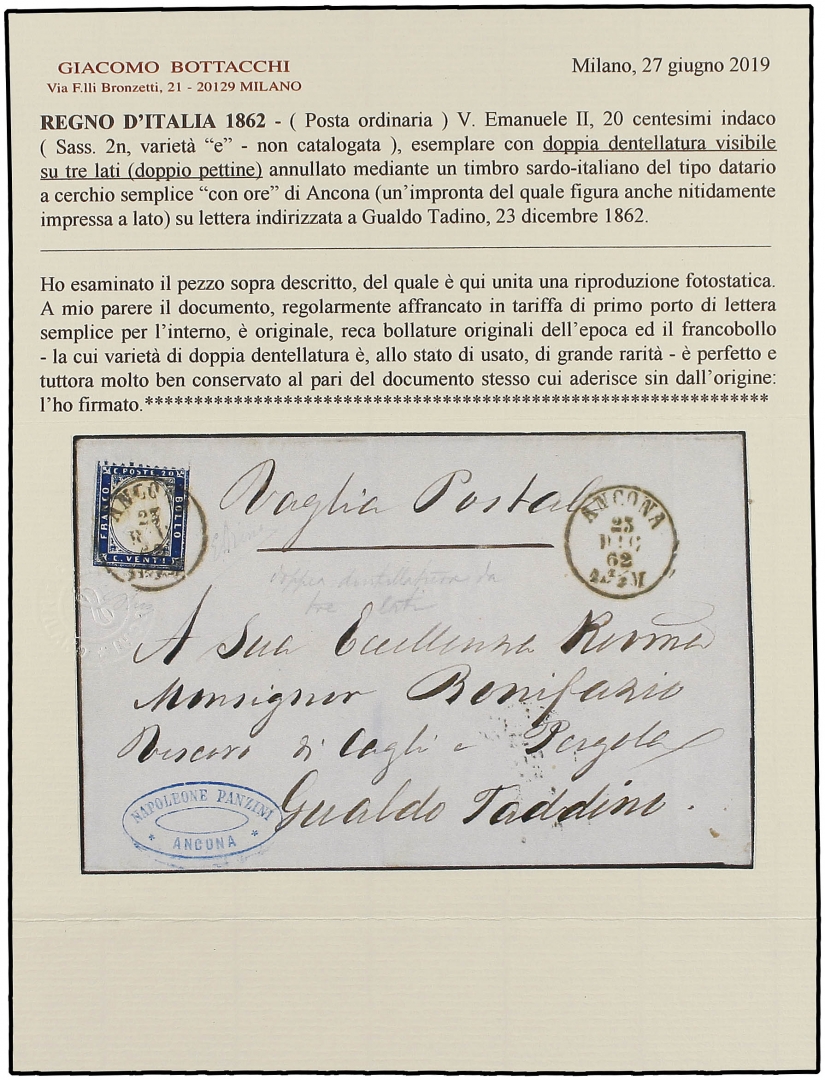 GIACOMO BOTTACCHI
Via F.lli Bronzetti, 21 - 20129 MILANO
Milano, 27 giugno 2019
REGNO D'ITALIA 1862 - ( Posta ordinaria ) V. Emanuele II, 20 centesimi indaco
( Sass. 2n, varietà “e” - non catalogata ), esemplare con doppia dentellatura visibile
su tre lati (doppio pettine) annullato mediante un timbro sardo-italiano del tipo datario
a cerchio semplice “con ore” di Ancona (un'impronta del quale figura anche nitidamente
impressa a lato) su lettera indirizzata a Gualdo Tadino, 23 dicembre 1862.
Ho esaminato il pezzo sopra descritto, del quale è qui unita una riproduzione fotostatica.
A mio parere il documento, regolarmente affrancato in tariffa di primo porto di lettera
semplice per l'interno, è originale, reca bollature originali dell'epoca ed il francobollo
- la cui varietà di doppia dentellatura è, allo stato di usato, di grande rarità - è perfetto e
tuttora molto ben conservato al pari del documento stesso cui aderisce sin dall'origine:
l'ho firmato.***************************************************************
C. POSTE. 20
FRANCO
BOLLO
C. VENTI
ANCONA
23
62
Vaglia Postale
ANCONA
23
DIC
62
M
doppia dentellatura da
tre lati
A Sua Eccellenza Revma
Monsignor Bonifazio
Vescovo di Cagli e Pergola
Gualdo Taddino.
NAPOLEONE PANZINI
* ANCONA *